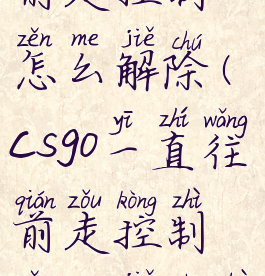 前走控制
zěn me jiě chú
怎么解除(
yī zhí wǎng
csgo一直往
qián zǒu kòng zhì
前走控制